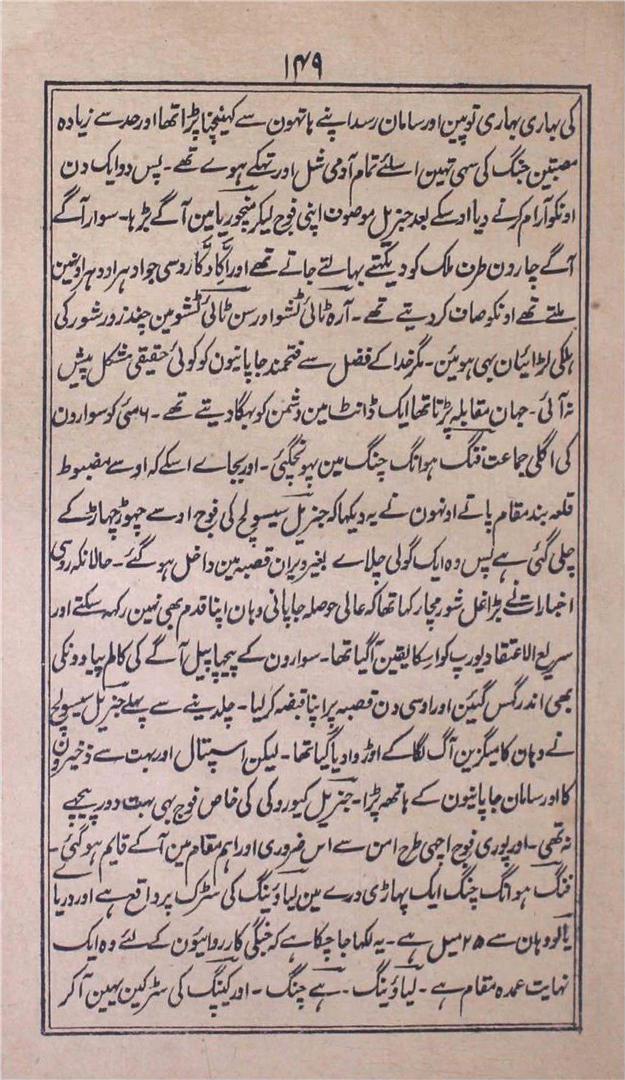 ۱۴۹
کی بہاری بہاری توپین اور سامان رسد اپنے ہاتہون سے کہینچنا پڑا تھا اور حد سے زیادہ
مصبتین جنگ کی سہی تہین اسلئے تمام آدمی شل اور تہکے ہوے تھے۔ پس دو ایک دن
اونکو آرام کرنے دیا اوسکے بعد جنرل موصوف اپنی فوج لیکر منچوریا مین آگے بڑہا۔ سوار آگے
آگے چارون طرف ملک کو دیکہتے بہالتے جاتے تھے اور اِکّا دُکّا روسی جو ادہر اودہر اونہین
ملتے تھے اونکو صاف کر دیتے تھے۔ آرہ ٹائی ٹنشو اور سن ٹائی ٹنشو مین چند زور شور کی
ہلکی لڑائیان بہی ہوئین۔ مگر خدا کے فضل سے فتحمند جاپانیون کو کوئی حقیقی مشکل پیش
نہ آئی۔ جہان مقابلہ پڑتا تھا ایک ڈانٹ مین دشمن کو بہگا دیتے تھے۔ ۶ مئی کو سوارون
کی اگلی جماعت فنگ ہوانگ چنگ مین پہونچگئی۔ اور بجاے اسکے کہ اوسے مضبوط
قلعہ بند مقام پاتے اونہون نے یہ دیکہا کہ جنرل سیسولچ کی فوج اوسے چہوڑ چہاڑ کے
چلی گئی ہے پس وہ ایک گولی چلاے بغیر ویران قصبہ مین داخل ہو گئے۔ حالانکہ روسی
اخبارات نے بڑا غل شور مچا رکہا تھا کہ عالی حوصلہ جاپانی وہان اپنا قدم بھی نہین رکہہ سکتے اور
سریع الاعتقاد یورپ کو اسکا یقین آگیا تھا۔ سوارون کے پیچہا پیل آگے کی کالم پیادونکی
بھی اندر گہس گئین اور اوسی دن قصبہ پر اپنا قبضہ کر لیا۔ چلدینے سے پہلے جنرل سیسولچ
نے وہان کا میگزین آگ لگا کے اوڑوا دیا گیا تھا۔ لیکن اسپتال اور بہت سے ذخیرون
کا اور سامان جاپانیون کے ہاتھ پڑا۔ جنرل کیوروکی کی خاص فوج بہی بہت دور پیچہے
نہ تھی۔ اور پوری فوج اچہی طرح امن سے اس ضروری اور اہم مقام مین آکے قایم ہو گئی۔
فنگ ہوانگ چنگ ایک پہاڑی درے مین لیاؤینگ کی سڑک پر واقع ہے اور دریاے
یالو وہان سے ۲۵ میل ہے۔ یہ لکہا جا چکا ہے کہ جنگی کارروائیون کے لئے وہ ایک
نہایت عمدہ مقام ہے۔ لیاؤینگ۔ ہے چنگ۔ اور کینپگ کی سڑکین یہین آکر